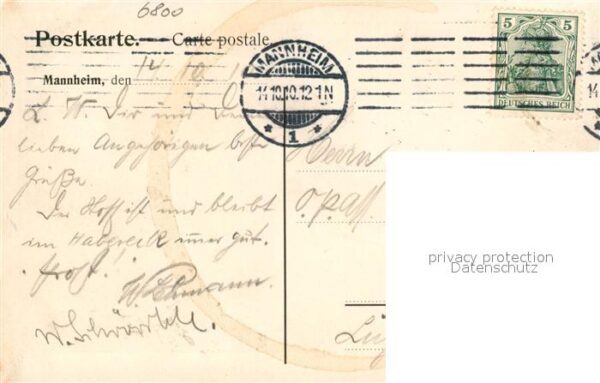 6800
Postkarte. — Carte postale
Mannheim, den 14. 10. 1
MANNHEIM
14.10.10.12-1N
* 1 *
5 5
DEUTSCHES REICH
14
L. W. Dir und Deinen
lieben Angehörigen beste
Grüße.
Der Stoff ist und bleibt
im Habereck immer gut.
Prost!
W. Lehmann.
W.
Herrn
privacy protection
Datenschutz